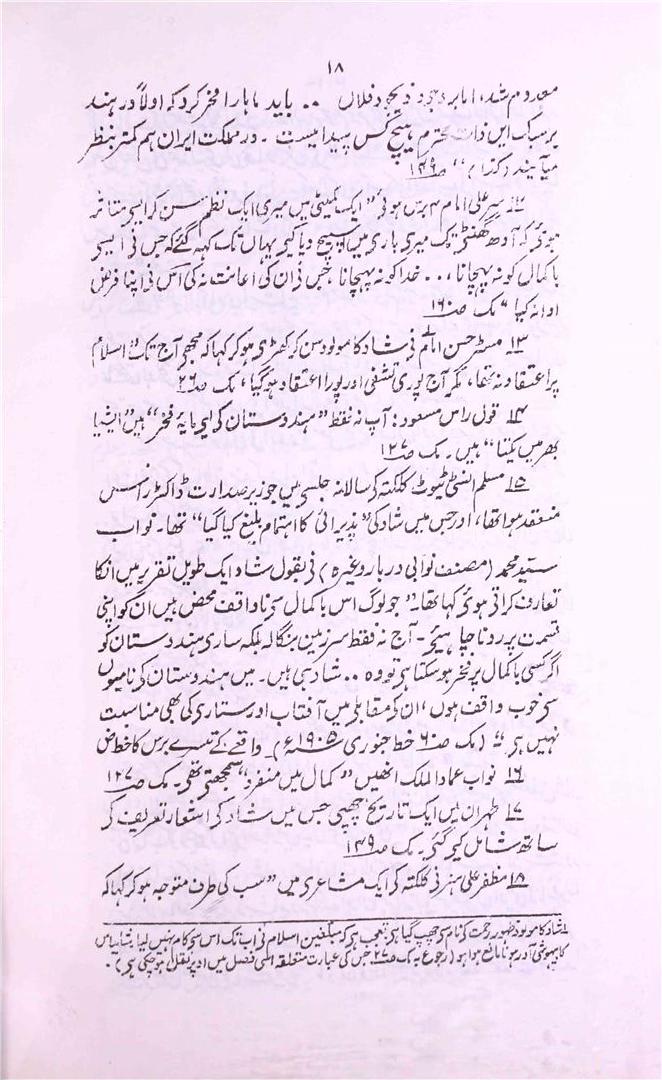 ۱۸
معدوم شد، اما بر وجود ذیجود فلاں ۰۰ باید ما ہارا فخر کرد کہ اولاً در ہند
بر سبک ایں ذات محترم ہیچ کس پیدا نیست ۔ در مملکت ایران ہم کمتر بنظر
می آیند (کذا) " ص۱۴۹
۱۲ سر علی امام ۳ برس ہوئی "ایک کمیٹی میں میری ایک نظم سن کر ایسی متاثر
ہوئی کہ آدھ گھنٹی تک میری باری میں اسپیچ دیا کیی یہاں تک کہہ گئے کہ جس نی ایسی
باکمال کو نہ پہچانا ۰۰۰ خدا کو نہ پہچانا جس نی ان کی اعانت نہ کی اس نی اپنا فرض
ادا نہ کیا " مک ص۱۶۰
۱۳ مسٹر حسن امام نی شاد کا مولود سن کر کھڑی ہو کر کہا کہ مجھی آج تک اسلام
پر اعتقاد نہ تھا، مگر آج پوری تشفی اور پورا اعتقاد ہو گیا، مک ص۲۶
۱۴ قول راس مسعود: آپ نہ فقط "ہندوستان کی لیی مایۂ فخر" ہیں "ایشیا
بھر میں یکتا" ہیں ۔ مک ص۱۲۷
۱۵ مسلم انسٹی ٹیوٹ کلکتہ کی سالانہ جلسی میں جو زیر صدارت ڈاکٹر راس
منعقد ہوا تھا، اور جس میں شاد کی "پذیرائی کا اہتمام بلیغ کیا گیا" تھا ۔ نواب
سید محمد (مصنف نوابی دربار وغیرہ) نی بقول شاد ایک طویل تقریر میں انکا
تعارف کراتی ہوئی کہا تھا۔ "جو لوگ اس باکمال سی ناواقف محض ہیں ان کو اپنی
قسمت پر رونا چاہیئی ۔ آج نہ فقط سرزمین بنگالہ بلکہ ساری ہندوستان کو
اگر کسی باکمال پر فخر ہو سکتا ہی تو وہ ۰۰ شاد ہی ہیں ۔ میں ہندوستان کی نامیوں
سی خوب واقف ہوں، ان کی مقابلی میں آفتاب اور ستاری کی بھی مناسبت
نہیں ہی" (مک ص۶۰ خط جنوری ۱۹۰۵ء)۔ واقعی کی تیسری برس کا خط ص
۱۶ نواب عماد الملک انھیں "کمال میں منفرد" سمجھتی تھی۔ مک ص۱۲۷
۱۷ طہران میں ایک تاریخ چھپی جس میں شاد کی اشعار تعریف کی
ساتھ شامل کیی گئی۔ مک ص۱۴۹
۱۸ مظفر علی ہنر نی کلکتہ کی ایک مشاعری میں "سب کی طرف متوجہ ہو کر کہا کہ
۱ شاد کا مولود ظہور رحمت کی نام سی چھپ گیا ہی، تعجب ہی کہ مبلغین اسلام نی اب تک اس سی کام نہیں لیا، شاید اس
کا بیہوشی آور ہونا مانع ہوا ہو (رجوع بہ مک ص۲۶ جس کی عبارت متعلقہ اگلی فصل میں اوپر نقل ہو چکی ہی)۔